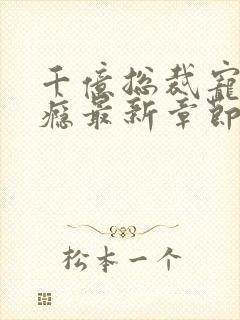 千億总裁寵
瘾最新章節
松本一个